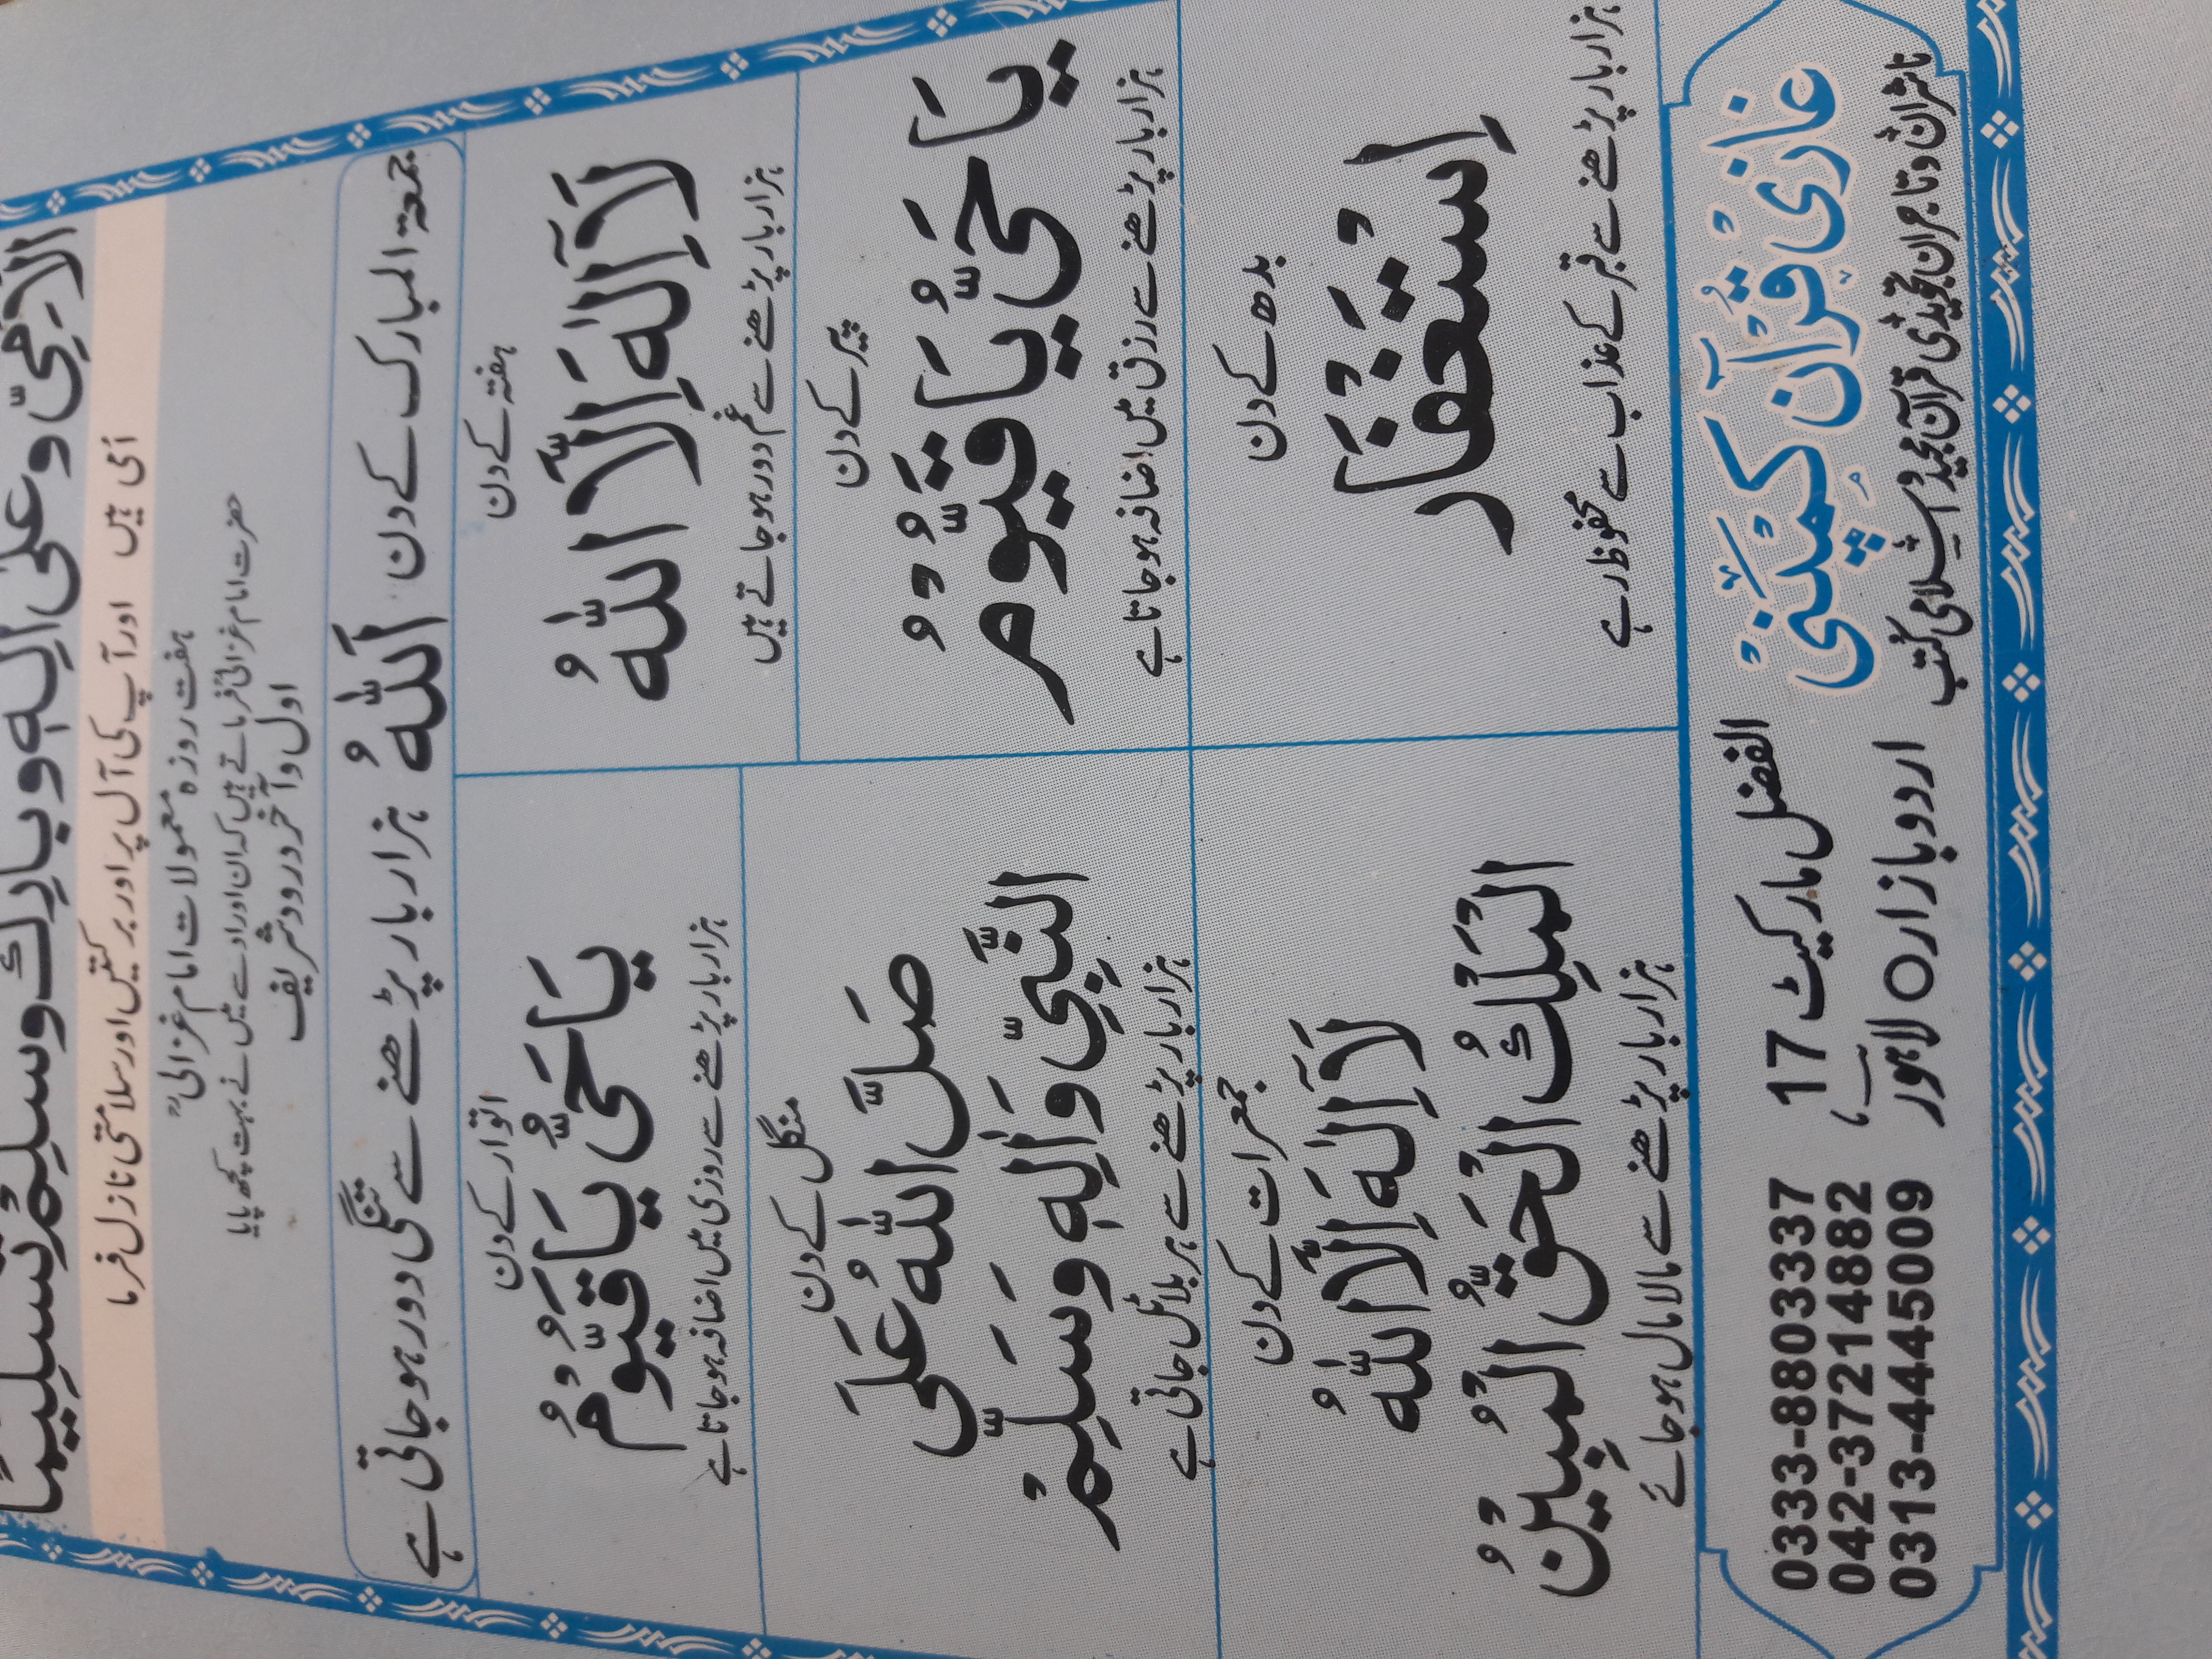 الْاُمِّيِّ وَعَلٰى اٰلِهٖ وَبَارِكْ وَسَلِّمْ تَسْلِيْمًا
اُمی ہیں اور آپ کی آل پر اور برکتیں اور سلامتی نازل فرما
ہفت روزہ معمولات امام غزالیؒ
حضرت امام غزالیؒ فرماتے ہیں کہ ان اوراد سے میں نے بہت کچھ پایا
اول و آخر درود شریف
جمعۃ المبارک کے دن اَللّٰهُ ہزار بار پڑھنے سے تنگی دور ہو جاتی ہے
ہفتہ کے دن
لَآ اِلٰهَ اِلَّا اللّٰهُ
ہزار بار پڑھنے سے غم دور ہو جاتے ہیں
اتوار کے دن
يَا حَيُّ يَا قَيُّوْمُ
ہزار بار پڑھنے سے روزی میں اضافہ ہو جاتا ہے
پیر کے دن
يَا حَيُّ يَا قَيُّوْمُ
ہزار بار پڑھنے سے رزق میں اضافہ ہو جاتا ہے
منگل کے دن
صَلَّ اللّٰهُ عَلَى
النَّبِيِّ وَاٰلِهٖ وَسَلِّمْ
ہزار بار پڑھنے سے ہر بلا ٹل جاتی ہے
بدھ کے دن
اِسْتَغْفَار
ہزار بار پڑھنے سے قبر کے عذاب سے محفوظ رہے
جمعرات کے دن
لَآ اِلٰهَ اِلَّا اللّٰهُ
الْمَلِكُ الْحَقُّ الْمُبِيْنُ
ہزار بار پڑھنے سے مالا مال ہو جائے
غازی قرآن کمپنی
ناشران و تاجران تجویدی قرآن مجید و اسلامی کتب
الفضل مارکیٹ 17
اردو بازار ○ لاہور
0333-8803337
042-37214882
0313-4445009